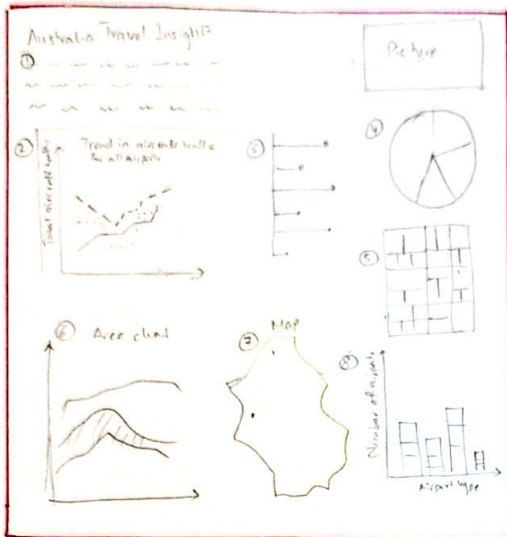 Australia Travel Insights
Picture
①
②
Trend in aircraft traffic
for all airports
Total aircraft traffic
③
④
⑤
⑥ Area chart
⑦ Map
⑧
Number of airports
Airport type